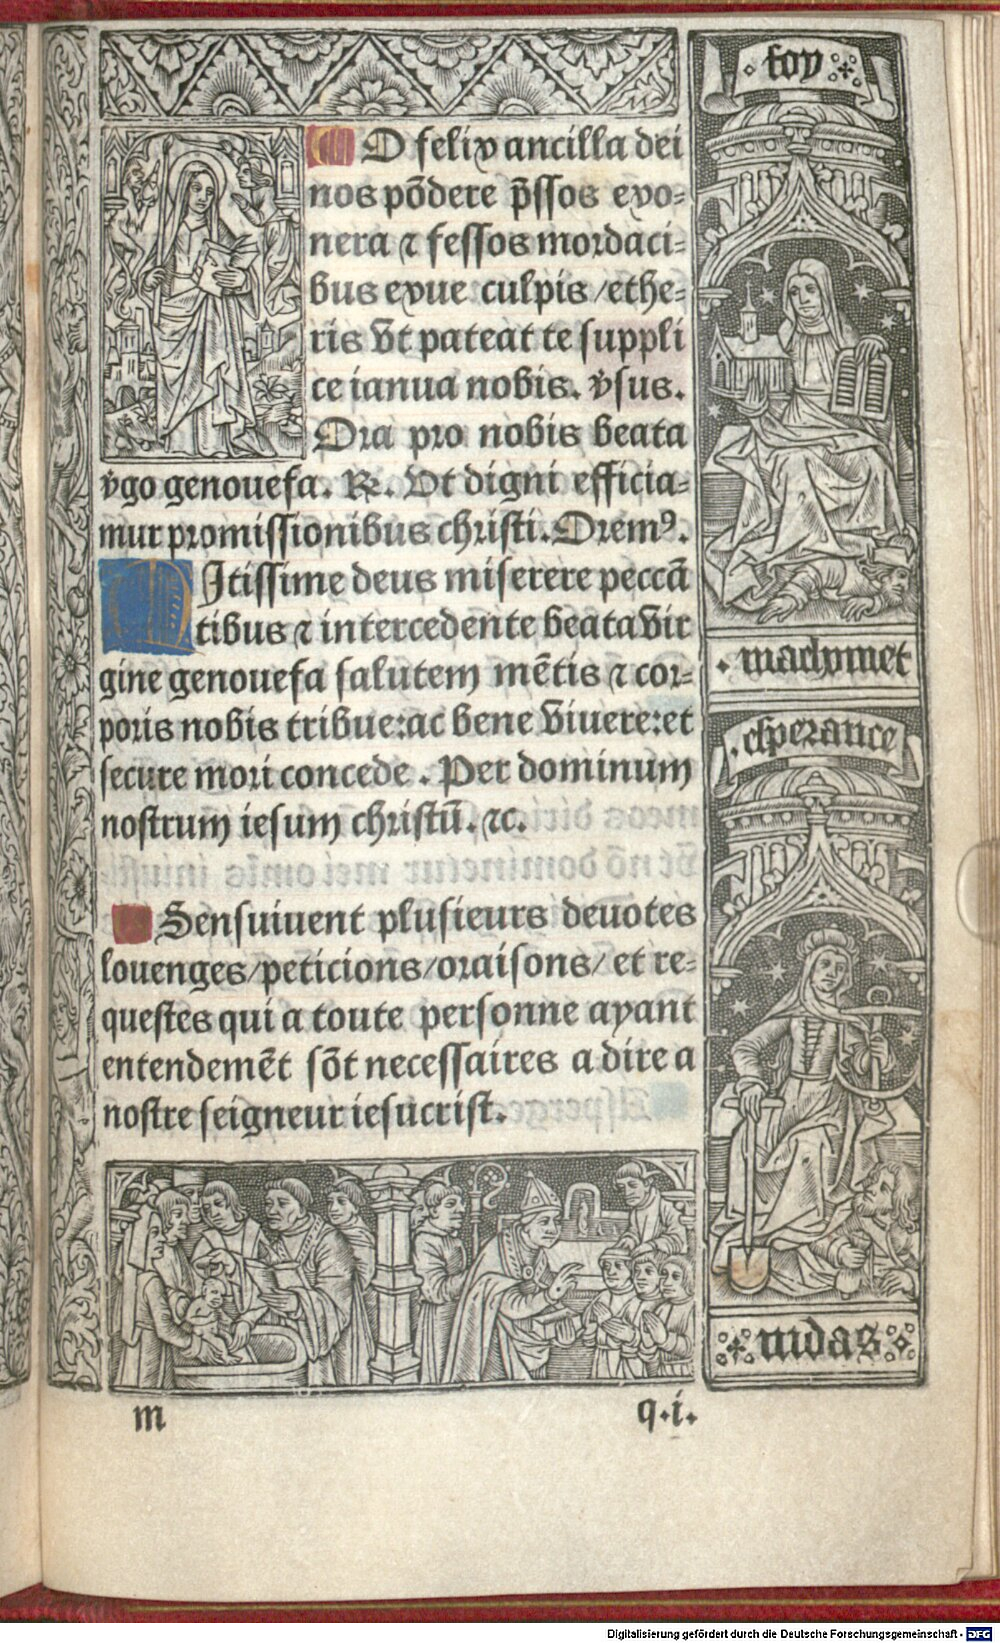 foy
O felix ancilla dei
nos põdere p̃ssos exo=
nera ⁊ fessos mordaci=
bus exue culpis / ethe=
ris vt pateat te suppli
ce ianua nobis. v̾sus.
Ora pro nobis beata
v̾go genouefa. ℟. Vt digni efficia=
mur promissionibus christi. Oremꝰ.
MItissime deus miserere peccã
tibus ⁊ intercedente beata vir
gine genouefa salutem mẽtis ⁊ cor=
poris nobis tribue: ac bene viuere: et
secure mori concede. Per dominum
nostrum iesum christũ. ⁊c.
Sensuiuent plusieurs deuotes
louenges / peticions / oraisons / et re=
questes qui a toute personne ayant
entendemẽt sõt necessaires a dire a
nostre seigneur iesucrist.
machomet
esperance
iudas
m
q.i.
Digitalisierung gefördert durch die Deutsche Forschungsgemeinschaft - DFG